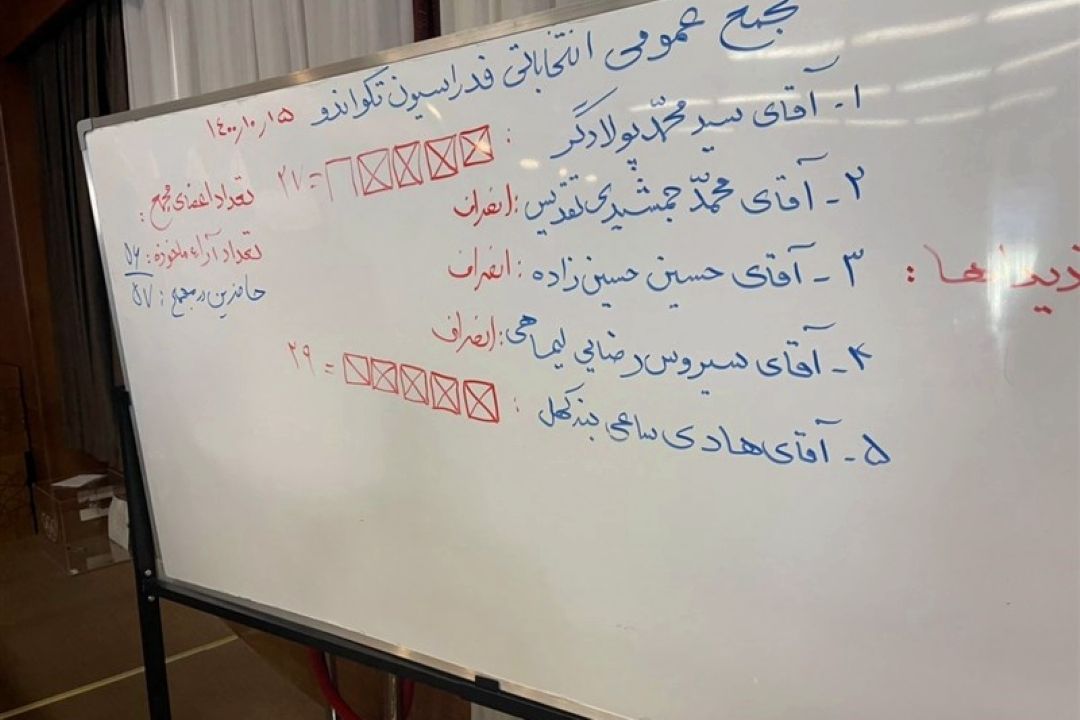 مجمع عمومی انتخاباتی فدراسیون تکواندو ۱۴۰۰/۱۰/۱۵
۱- آقای سید محمّد پولادگر : = ۲۷
۲- آقای محمّد جمشیدی تقدیس : انصراف
۳- آقای حسین حسین زاده : انصراف
۴- آقای سیروس رضایی لیماهی : انصراف
۵- آقای هادی ساعی بنه کهل : = ۲۹
تعداد اعضای مجمع :
تعداد آراء ماخوذه : ۵۶
حاضرین در مجمع : ۵۷